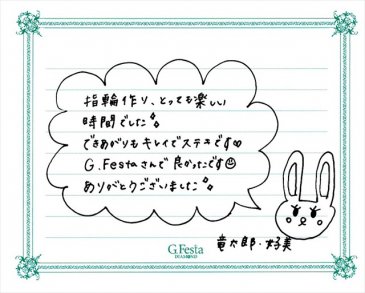 指輪作り、とっても楽しい
時間でした
できあがりもキレイでステキです♡
G.Festaさんで良かったです☺
ありがとうございました
竜太郎・好美
G.Festa
DIAMOND